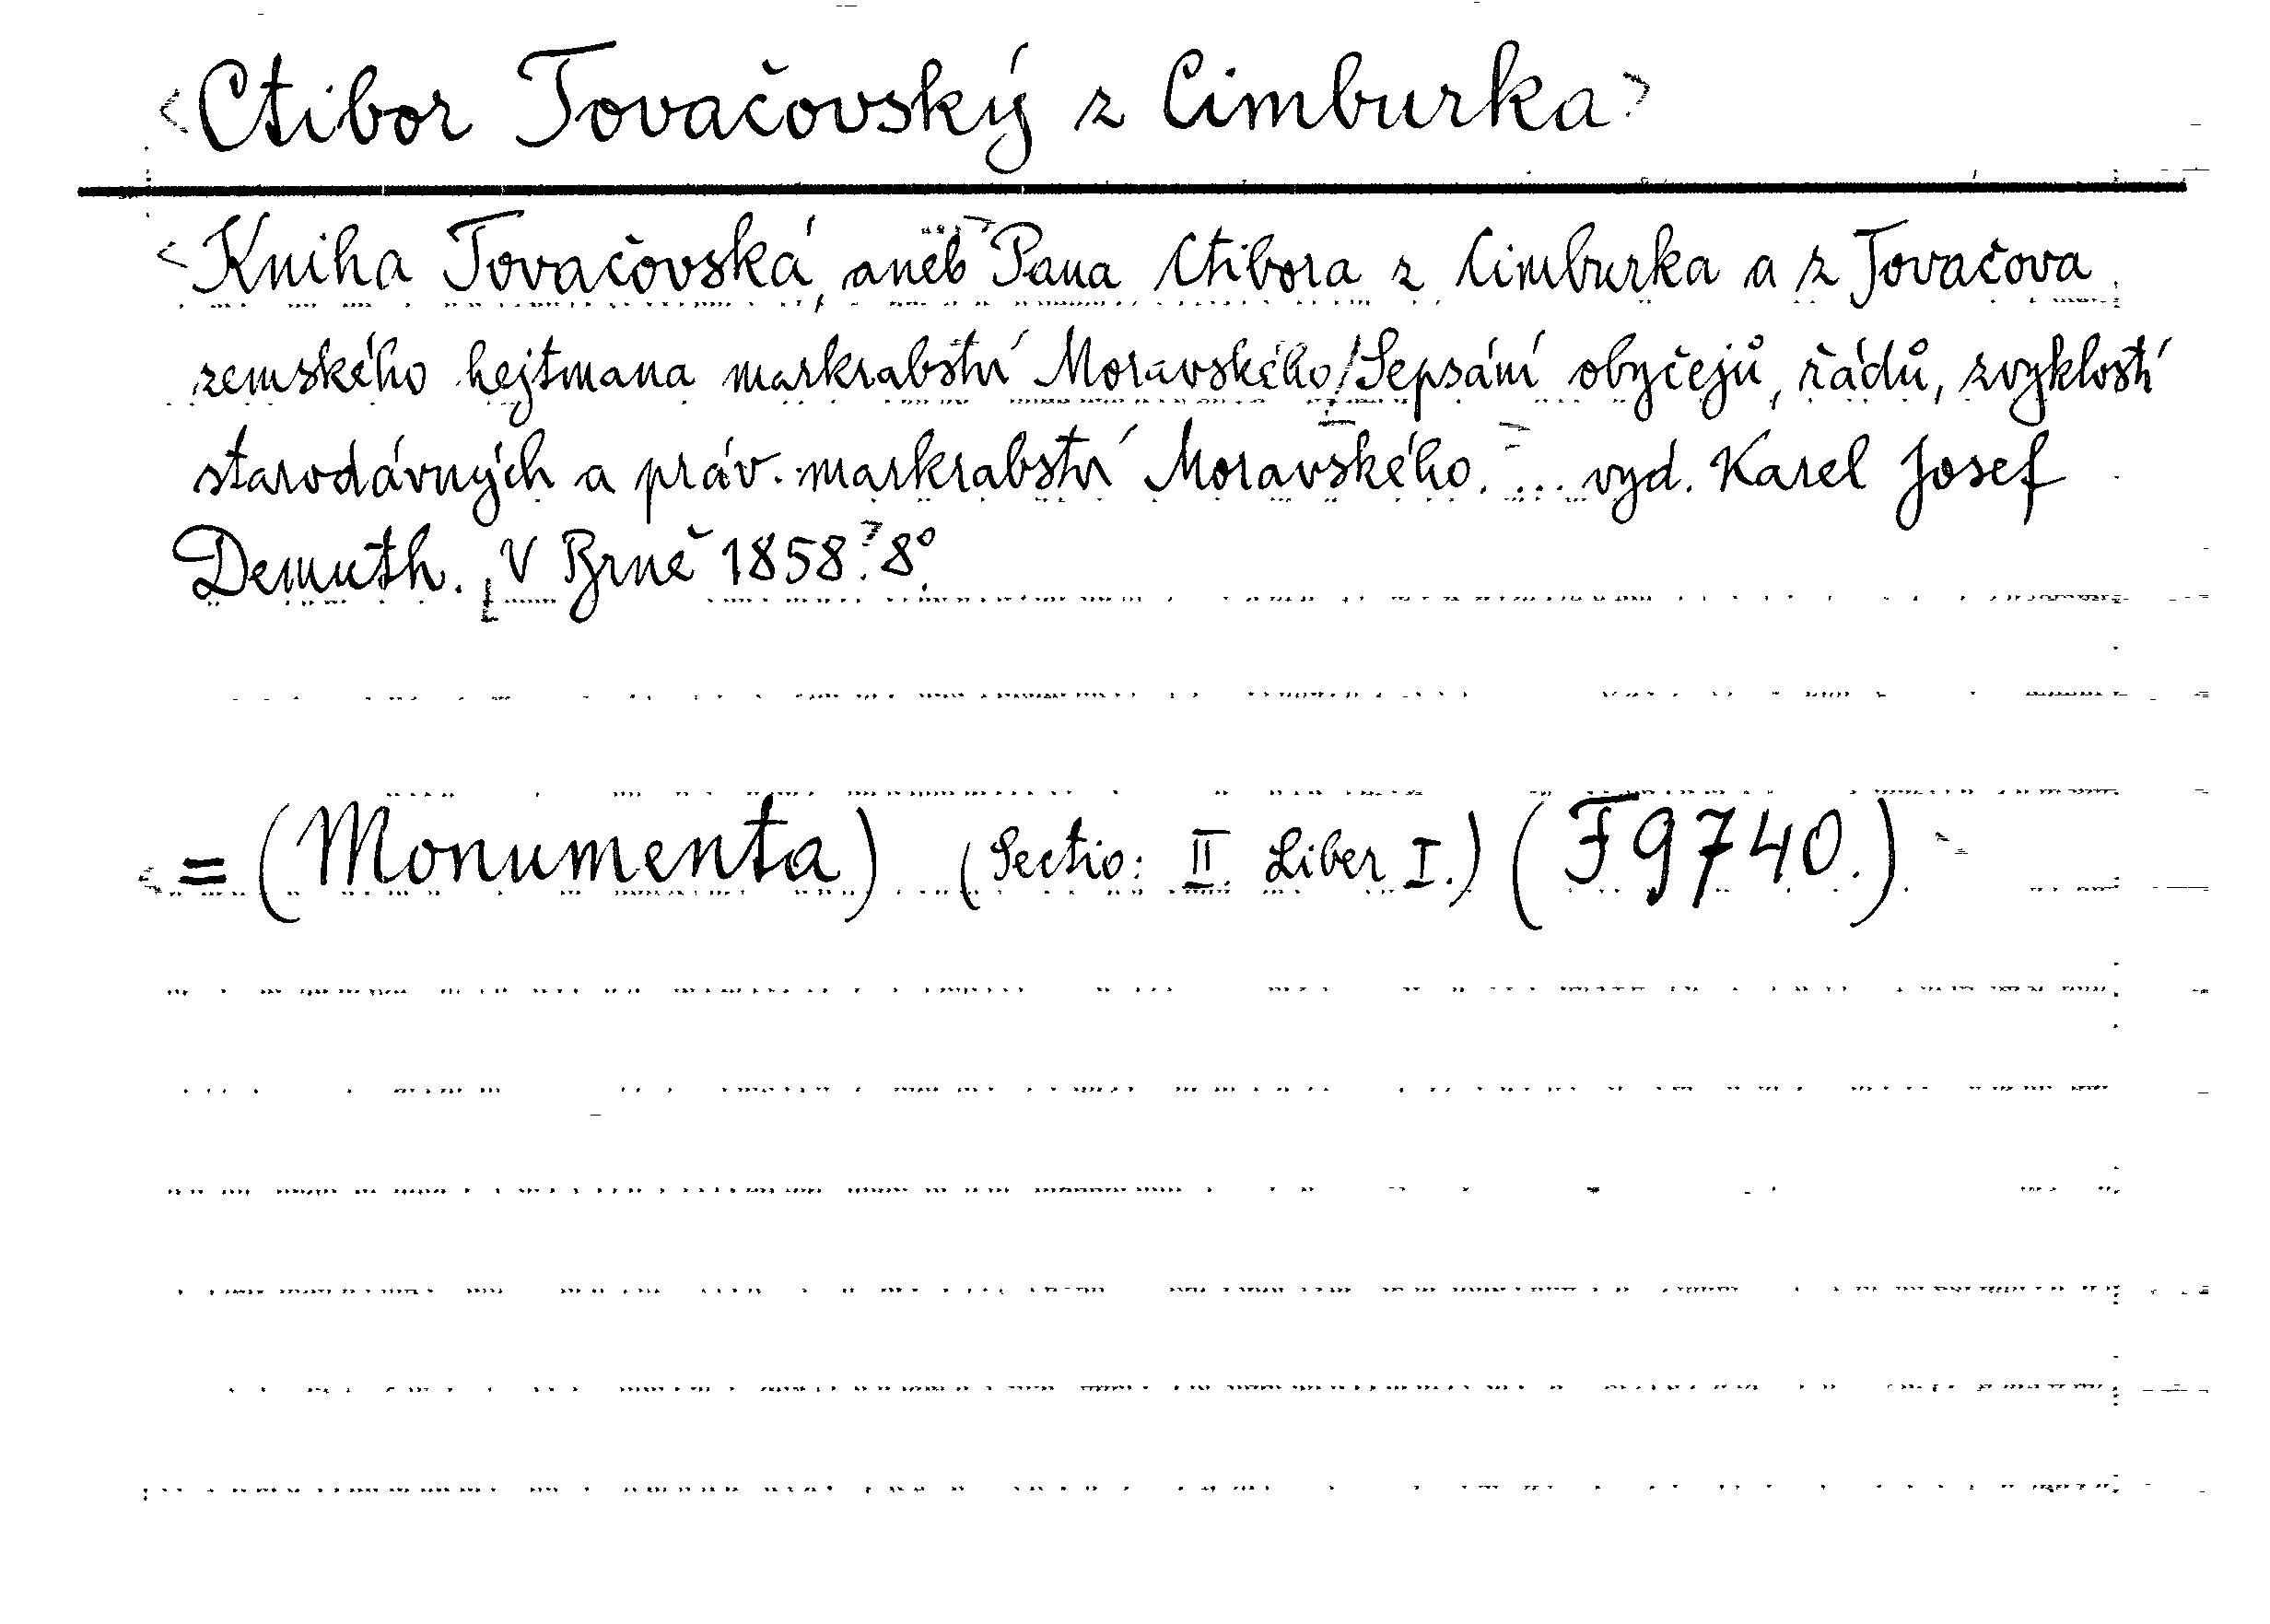 <Ctibor Tovačovský z Cimburka>
<Kniha Tovačovská, aneb Pana Ctibora z Cimburka a z Tovačova
zemského hejtmana markrabství Moravského/Sepsání obyčejů, řádů, zvyklostí
starodávných a práv. markrabství Moravského. ... vyd. Karel Josef
Demuth. V Brně 1858. 8°.
<= (Monumenta) (Sectio: II. Liber I.) (F9740.)>